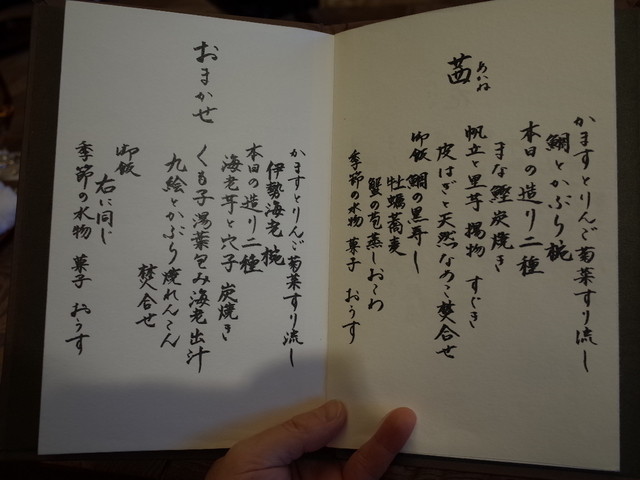 茜
あかね
かますとりんご菊菜すり流し
鯛とかぶら椀
本日の造り二種
まな鰹炭焼き
帆立と里芋揚物 すぐき
皮はぎと天然なめこ焚合せ
御飯 鯛の黒寿し
牡蠣蕎麦
蟹の苞蒸しおこわ
季節の水物 菓子 おうす
おまかせ
かますとりんご菊菜すり流し
伊勢海老椀
本日の造り二種
海老芋と穴子 炭焼き
くも子湯葉包み海老出汁
九絵とかぶら焼れんこん
焚合せ
御飯 右に同じ
季節の水物 菓子 おうす